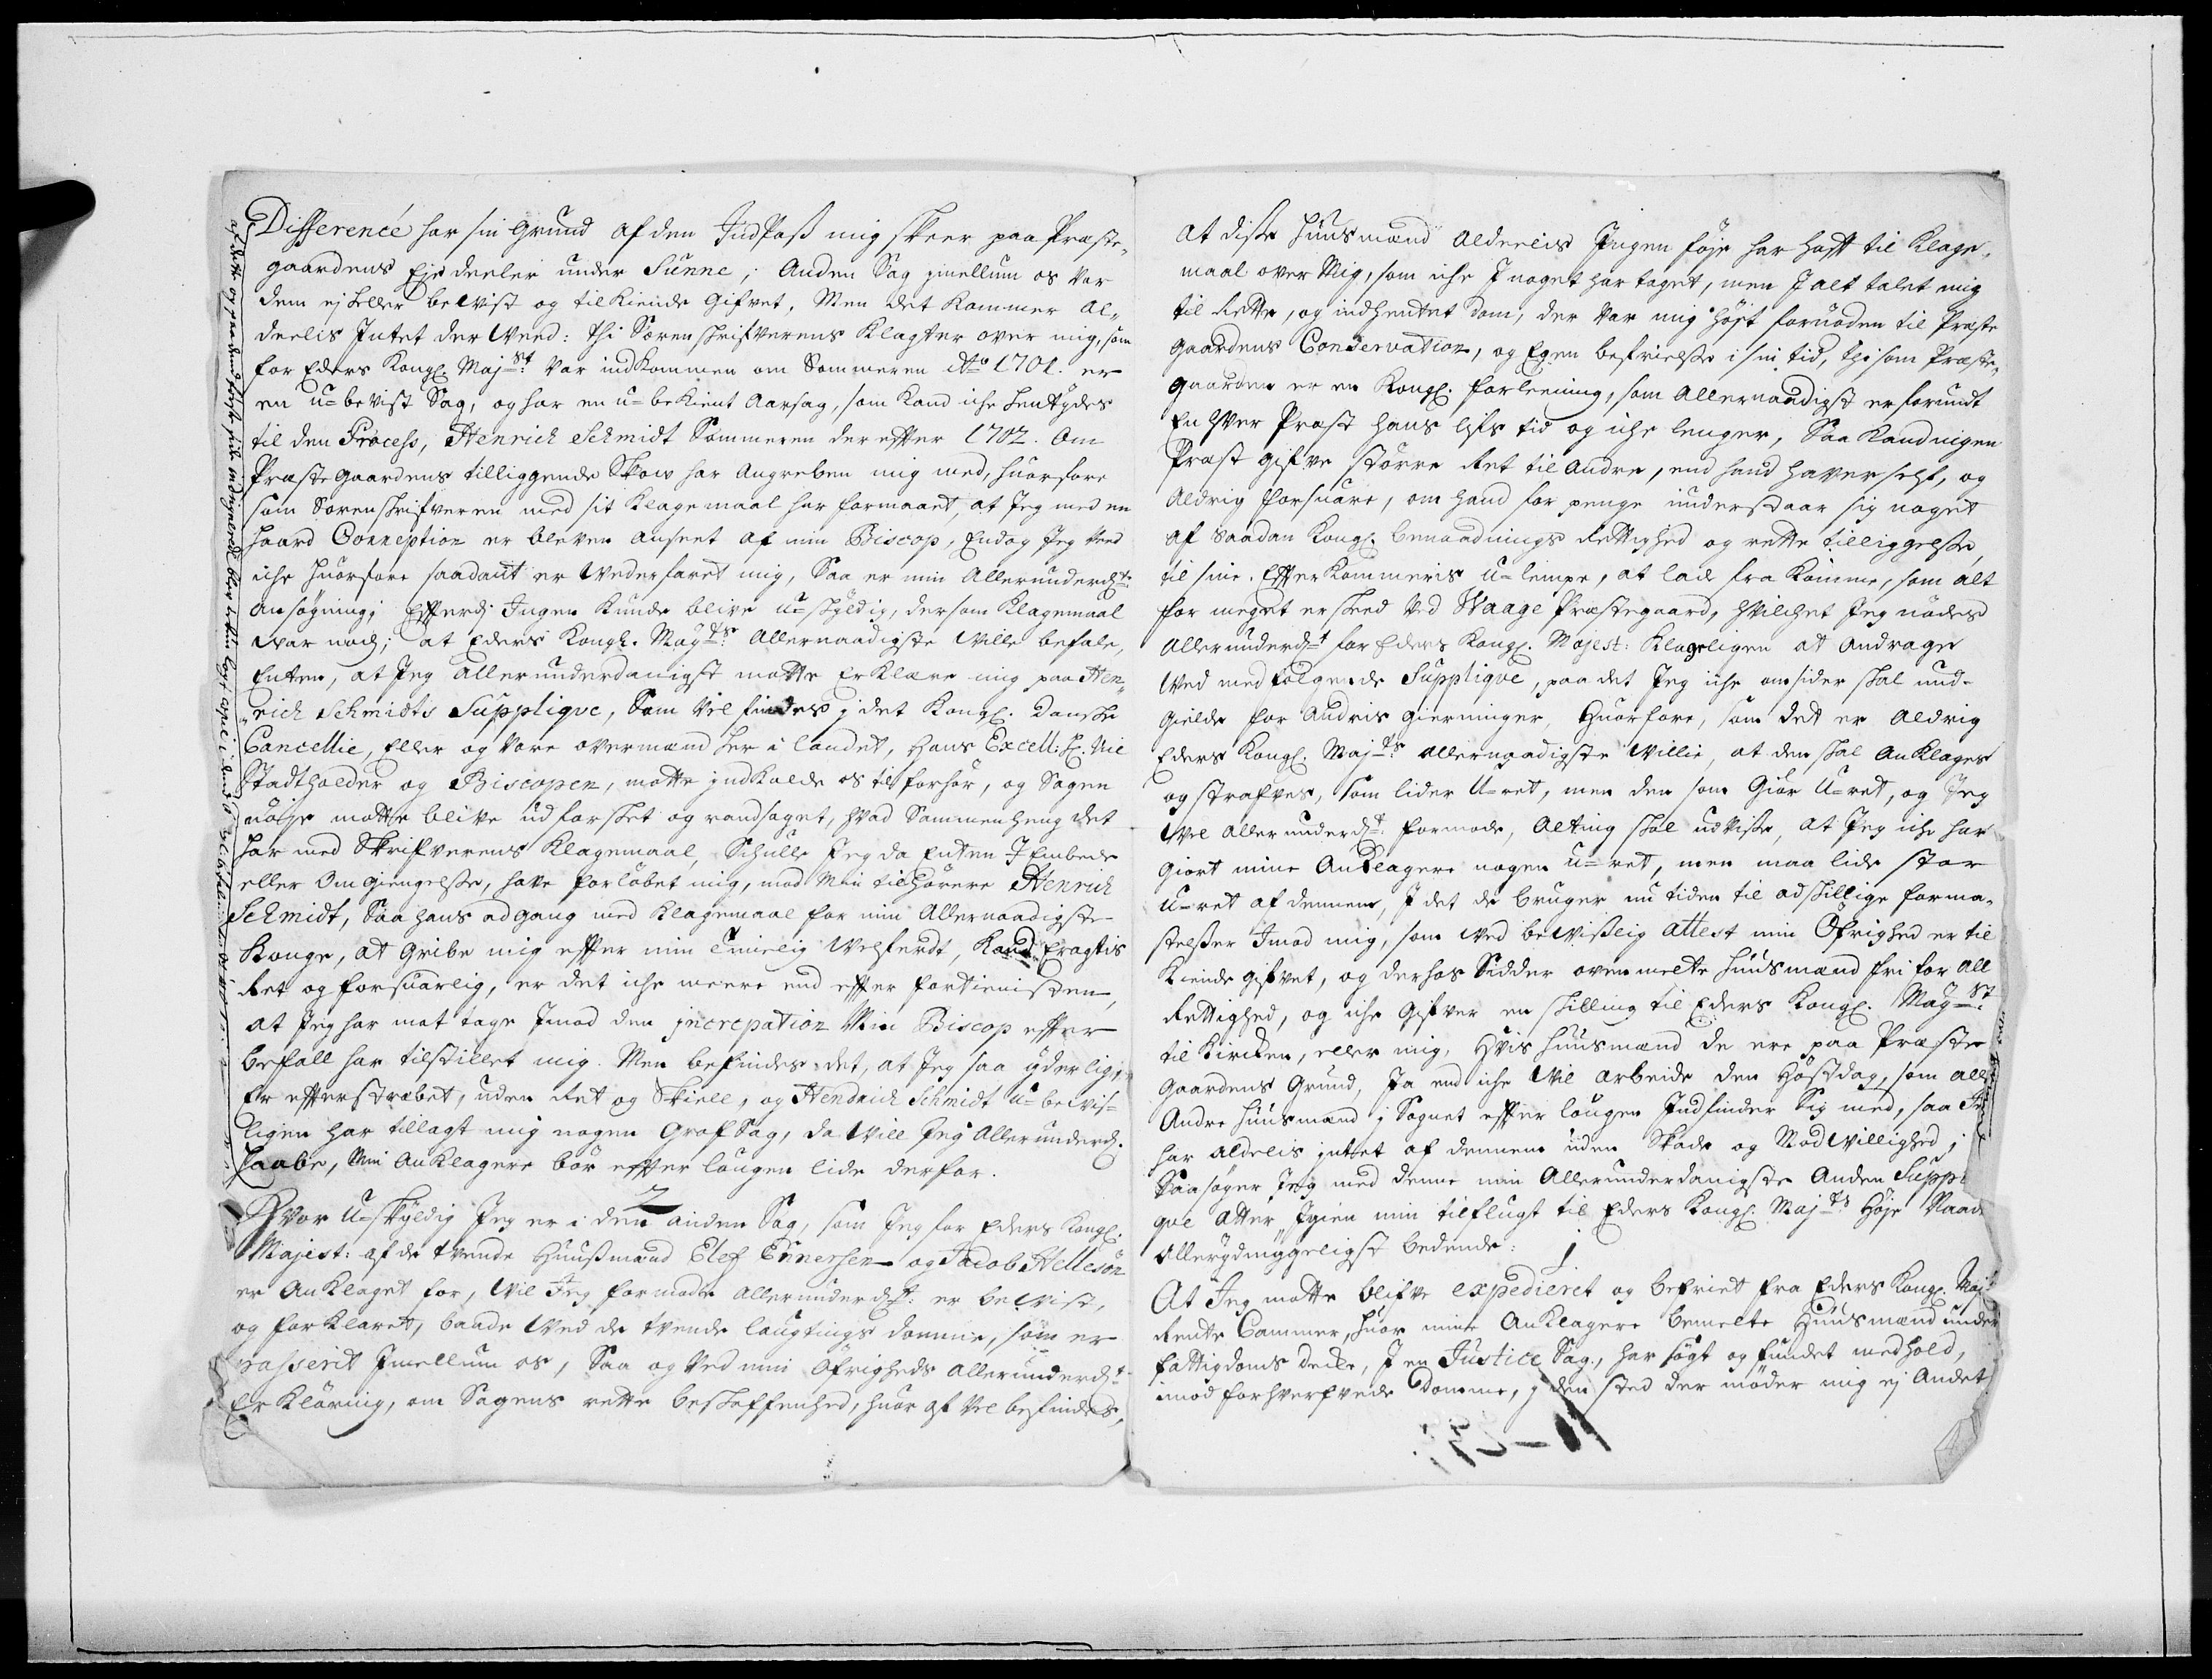 Differencé har sin Grund af den IndPaß mig skeer paa Præste-
gaardens Eje deeler under Sunne; Anden Sag imellum os var
dem ej heller bevist og tilkiende gifvet. Men det kommer al-
deelis Intet der Veed: thi Sorenskrifverens Klagter over mig, som
for Eders Kongl. Maj.st var indkommen om Sommeren Ao 1701. er
en u-bevist Sag, og har en u-bekient Aarsag, som kand iche hentydes
til den Process, Henrich Schmidt Sommeren der effter 1702. om
Præstegaardens tilliggende Skow har Angreben mig med, huorfore
som Sorenskrifveren med sit Klagemaal har formaaet, at Jeg med en
haard Correption er bleven anseet af min Biscop, Endog Jeg veed
iche huorfore saadant er Vederfaret mig, Saa er min Allerunderd.te
ansøgning; Efferdj Ingen kunde blive u-skyldig, dersom Klagemaal
var nock; at Eders Kongl. May.ts Allernaadigste Ville befale,
Enten, at Jeg allerunderdanigst motte Erklære mig paa Hen-
rich Schmidts Supplique, Som Vil findes j det Kongl. Danske
Cancellie, Eller og vore overmænd her i landet, Hans Excell: H. Vice
Stadtholder og Biscopen, motte jndkalde os til forhør, og Sagen
nøye motte blive udforsket og randsaget, hvad Sammenheng det
har med Skrifverens Klagemaal, Schulle Jeg da Enten J Embede
eller Omgiengelsse, have forløbet mig, mod Min tilhørere Henrich
Schmidt, Saa hans adgang med Klagemaal for min Allernaadigste
Konge, at Gribe mig effter min timelig Velferdt, Kand Eragtis
Ret og forsuarlig, er det iche meere end effter fortienisten,
at Jeg har mot tage Imod den jncrepation Min Biscop effter
befall har tilstillet mig. Men befindes det, at Jeg saa yderlig
Er effterstræbet, uden Ret og Skiell, og Hendrich Schmidt u-bevis-
ligen har tillagt mig nogen Grof Sag, da Vill Jeg Allerunderd.
haabe, Min Anklagere bør effter lougen lide derfor.
2
Hvor U-skyldig Jeg er i den anden Sag, som Jeg for Eders Kongl.
Majest: af de tvende Huußmænd Elef Ennersen og Jacob Helleson
er Anklaget for, Vil Jeg formode allerunderd.st er bevist,
og forklaret, baade Ved de tvende laugtings domme, som er
passerit Jmellum os, Saa og Ved min Øfrigheds allerunderd.st
Erkläring, om Sagens rette beskaffenhed, huor af Vel befindes,
at disse Huusmænd aldeelis Ingen føje har hafft til Klage-
maal over Mig, som iche J noget har taget, men J alt talet mig
til Rette, og indhentet dom, der var mig høyst fornøden til Præste
Gaardens Conservation, og Egen befrielsse i sin tid, thi som Præste-
gaarden er en Kongl. forleening, som Allernaadigst er forundt
En hver Præst hans lifs tid og iche lenger, Saa kand ingen
Præst gifve større Ret til Andre, end hand haver self, og
Aldrig forsuare, om hand for penge understaar sig noget
af Saadan Kongl. benaadnings Rettighed og rette tilliggelsse
til sine Effterkommeris u-lempe, at lade fra komme, som alt
for meget er skeed ved Waage Præstegaard, hvilchet Jeg nødes
Allerunderd.st for Eders Kongl. Majest: Klageligen at Andrage
Ved medfølgende Supplique, paa det Jeg iche omsider skal und-
gielde for Andris gierninger, Huorfore, som det er Aldrig
Eders Kongl. Maj.ts allernaadigste Villie, at den skal Anklages
og straffes, som lider U-ret, men den som Giør U-ret, og Jeg
Vel Allerunderd.st formode, Alting skal udvisse, at Jeg iche har
Giort mine Anklagere nogen u-ret, men maa lide stor
u-ret af dennem, J det de bruger nu tiden til adskillige forma-
stelsser Imod mig, som ved bevißlig attest min Øfrighed er til
Kiende gifvet, og derhos Sidder ovenmelte huusmænd fri for all
Rettighed, og iche gifver en skilling til Eders Kongl. May.st
til Kircken, eller mig, Hvis huusmænd de ere paa Præste
Gaardens Grund, Ja end iche Vil arbeide den høstdag, som alle
Andre huusmænd j Sognet effter lougen Indfinder Sig med, saa Jeg
har aldelis jntet af dennem uden Skade og Modvillighed,
Saa søger Jeg med denne min Allerunderdanigste Anden Suppli
que atter Igien min tilflugt til Eders Kongl. Maj.ts Høje Naade
Allerydmyggeligst bedende:
1
At Jeg motte blifve expedieret og befriet fra Eders Kongl. Maj.ts
Rente Cammer, huor mine Anklagere bemelte Huusmænd under
fattigdoms decke, J en Justice Sag, har søgt og fundet medhold,
imod forhverfvede Domme, j den sted der møder mig ej Andet